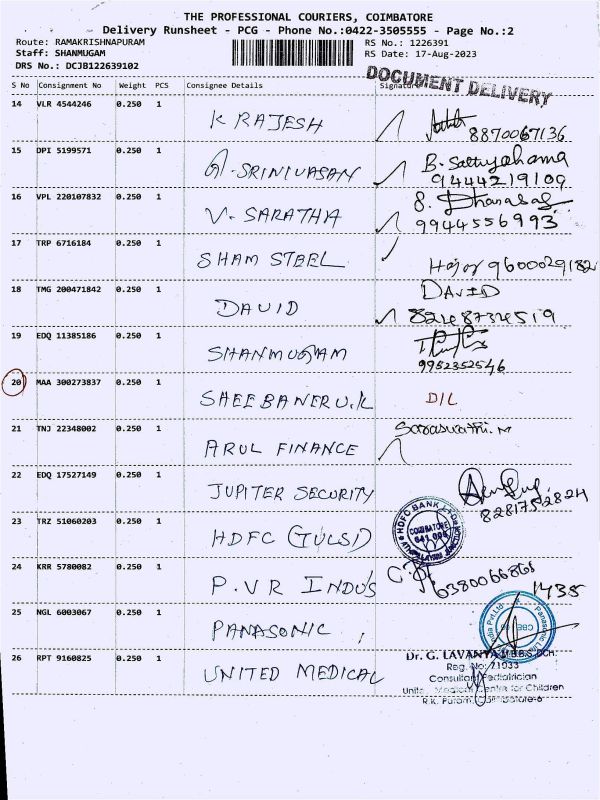 THE PROFESSIONAL COURIERS, COIMBATORE
Delivery Runsheet - PCG - Phone No.:0422-3505555 - Page No.:2
Route: RAMAKRISHNAPURAM
Staff: SHANMUGAM
DRS No.: DCJB122639102
RS No.: 1226391
RS Date: 17-Aug-2023
DOCUMENT DELIVERY
S No Consignment No Weight PCS Consignee Details Signature
14 VLR 4544246 0.250 1 K RAJESH 8870067136
15 DPI 5199571 0.250 1 G. SRINIVASAN B. Sathyabama
9444219109
16 VPL 220107832 0.250 1 V. SARATHA S. Dhanabag
9944556993
17 TRP 6716184 0.250 1 SHAM STEEL 9600029182
18 TMG 200471842 0.250 1 DAVID DAVID
8248734519
19 EDQ 11385186 0.250 1 SHANMUGAM
9952352546
20 MAA 300273837 0.250 1 SHEEBANERU.K D/L
21 TNJ 22348002 0.250 1 ARUL FINANCE Saraswathi. M
22 EDQ 17527149 0.250 1 JUPITER SECURITY 8281752824
23 TRZ 51060203 0.250 1 HDFC (TULSI) HDFC BANK LTD
COIMBATORE
641 005
JUNCTION
24 KRR 5780082 0.250 1 P.V R INDUS 6380066868
1435
25 NGL 6003067 0.250 1 PANASONIC
26 RPT 9160825 0.250 1 UNITED MEDICAL Dr. G. LAVANYA M.B.B.S.,DCH.
Reg. No: 71033
Consultant Pediatrician
United Medical Centre for Children
R.K. Puram, Coimbatore-6